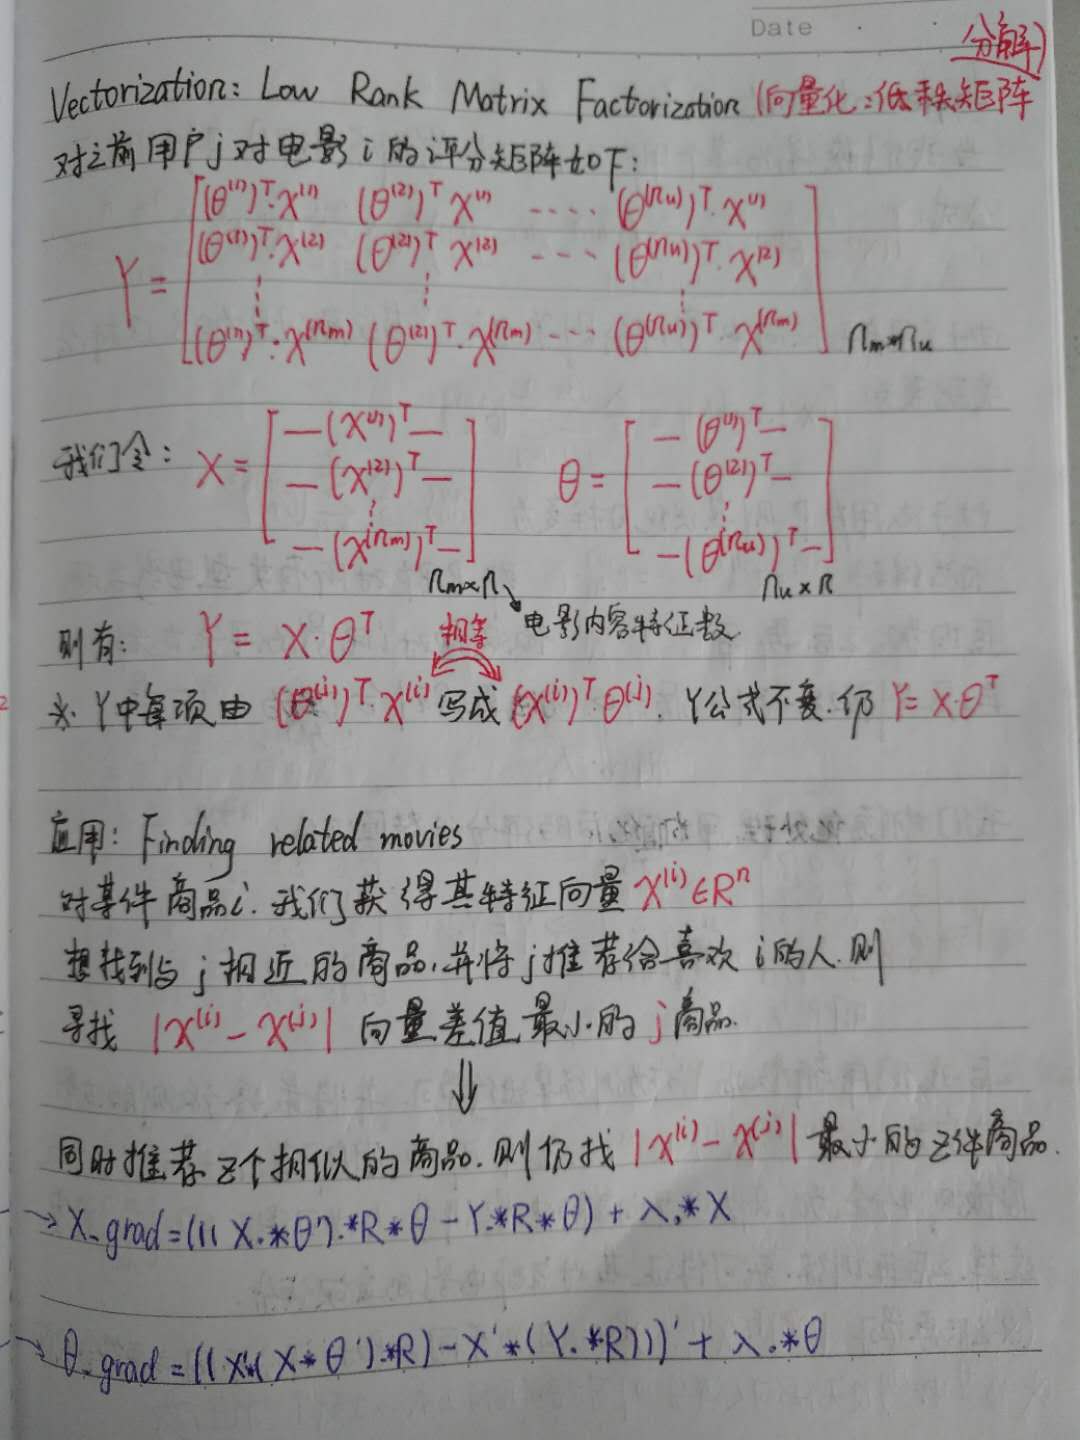 Date
Vectorization: Low Rank Matrix Factorization (向量化:低秩矩阵分解)
对之前用户j对电影i的评分矩阵如下:
Y = [ (θ⁽¹⁾)ᵀ·x⁽¹⁾ (θ⁽²⁾)ᵀ x⁽¹⁾ ---- (θ⁽ⁿᵘ⁾)ᵀ·x⁽¹⁾
(θ⁽¹⁾)ᵀ·x⁽²⁾ (θ⁽²⁾)ᵀ x⁽²⁾ --- (θ⁽ⁿᵘ⁾)ᵀ·x⁽²⁾
⋮ ⋮ ⋮
(θ⁽¹⁾)ᵀ·x⁽ⁿᵐ⁾ (θ⁽²⁾)ᵀ·x⁽ⁿᵐ⁾ --- (θ⁽ⁿᵘ⁾)ᵀ·x⁽ⁿᵐ⁾ ] nm*nu
我们令: X = [ —(x⁽¹⁾)ᵀ— θ = [ —(θ⁽¹⁾)ᵀ—
—(x⁽²⁾)ᵀ— —(θ⁽²⁾)ᵀ—
⋮ ⋮
—(x⁽ⁿᵐ⁾)ᵀ— ] —(θ⁽ⁿᵘ⁾)ᵀ— ]
nm×n nu×n
电影内容特征数
则有: Y = X·θᵀ 相等
※ Y中每项由 (θ⁽ʲ⁾)ᵀ·x⁽ⁱ⁾ 写成 (x⁽ⁱ⁾)ᵀ·θ⁽ʲ⁾. Y公式不变.仍 Y=X·θᵀ
应用: Finding related movies
对某件商品i.我们获得其特征向量 x⁽ⁱ⁾∈Rⁿ
想找到与j相近的商品,并将j推荐给喜欢i的人.则
寻找 |x⁽ⁱ⁾ - x⁽ʲ⁾| 向量差值最小的j商品.
⇓
同时推荐z个相似的商品.则仍找 |x⁽ⁱ⁾ - x⁽ʲ⁾| 最小的z件商品.
→ X_grad = (((X.*θ').*R*θ - Y.*R*θ) + λ.*X
→ θ_grad = ((X'*(X*θ').*R) - X'*(Y.*R)))' + λ.*θ